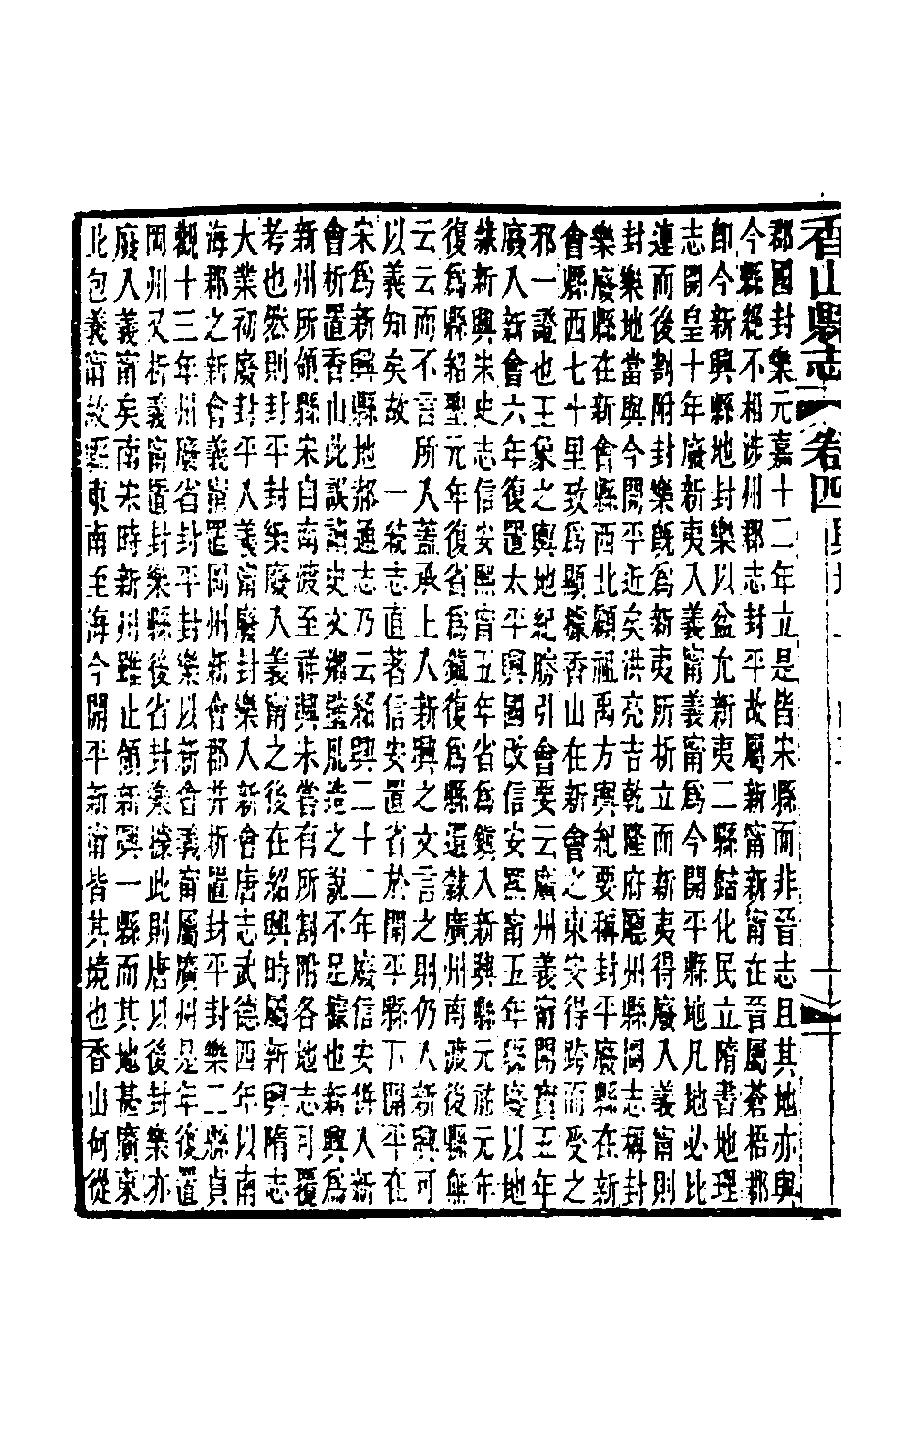 香山縣志 卷四 輿地上
郡國封樂元嘉十二年立是皆宋縣而非晉志且其地亦與
今縣絕不相涉州郡志封平故屬新甯新甯在晉屬蒼梧郡
卽今新興縣地封樂以盆允新夷二縣歸化民立隋書地理
志開皇十年廢新夷入義甯義甯爲今開平縣地凡地必比
連而後割附封樂旣爲新夷所析立而新夷得廢入義甯則
封樂地當與今開平近矣洪亮吉乾隆府廳州縣圖志稱封
樂廢縣在新會縣西北顧祖禹方輿紀要稱封平廢縣在新
會縣西七十里致爲顯據香山在新會之東安得跨而受之
邪一證也王象之輿地紀勝引會要云廣州義甯開寶五年
廢入新會六年復置太平興國改信安熙甯五年縣廢以地
隸新興朱史志信安熙甯五年省爲鎮入新興縣元祐元年
復爲縣紹聖元年復省爲鎮復爲縣還隸廣州南渡後縣無
云云而不言所入蓋承上入新興之文言之則仍入新興可
以義知矣故 一統志直著信安置省於開平縣下開平在
宋爲新興縣地郝通志乃云紹興二十二年廢信安併入新
會析置香山此誤讀史文鄉壁虛造之說不足據也新興爲
新州所領縣宋自南渡至祥興未嘗有所割附各地志可覆
考也然則封平封樂廢入義甯之後在紹興時屬新興隋志
大業初廢封平入義甯廢封樂入新會唐志武德四年以南
海郡之新會義甯置岡州新會郡并析置封平封樂二縣貞
觀十三年州廢省封平封樂以新會義甯屬廣州是年復置
岡州又析義甯置封樂縣後省封樂據此則唐以後封樂亦
廢入義甯矣南宋時新州雖止領新興一縣而其地甚廣東
北包義甯故壓東南至海今開平新甯皆其境也香山何從